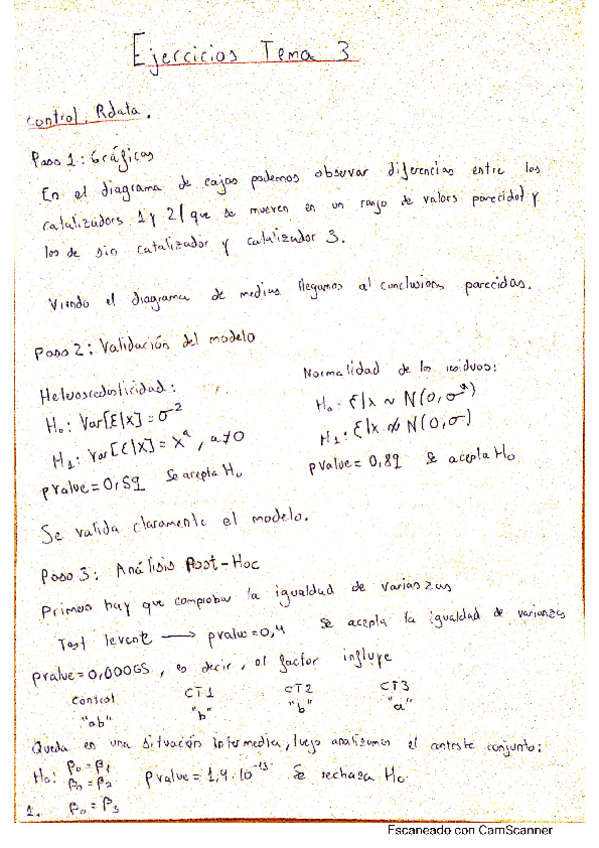 Ejercicios Tema 3
control.Rdata.
Paso 1: Gráficas
En el diagrama de cajas podemos observar diferencias entre los
catalizadors 1 y 2 (que se mueven en un rango de valors parecidos) y
los de sin catalizador y catalizador 3.
Viendo el diagrama de medias llegamos al conclusions parecidas.
Paso 2: Validación del modelo
Heteroscedasticidad:
H₀: Var[ε|X] = σ²
H₁: Var[ε|X] = Xᵃ, a≠0
pvalue = 0,59 Se acepta H₀
Normalidad de los residuos:
H₀: ε|x ~ N(0,σ²)
H₁: ε|x ≁ N(0,σ)
pvalue = 0,89 Se acepta H₀
Se valida claramente el modelo.
Paso 3: Análisis Post-Hoc
Primero hay que comprobar la igualdad de varianzas
Test levente → pvalue = 0,4 Se acepta la igualdad de varianzas
pvalue = 0,00065, es decir, el factor influye
Control CT1 CT2 CT3
"ab" "b" "b" "a"
Queda en una situación intermedia, luego analizamos el conteste conjunto:
H₀: β₀ = β₁
β₀ = β₂ pvalue = 1,4·10⁻¹⁵ Se rechaza H₀
1. β₀ = β₃
Escaneado con CamScanner